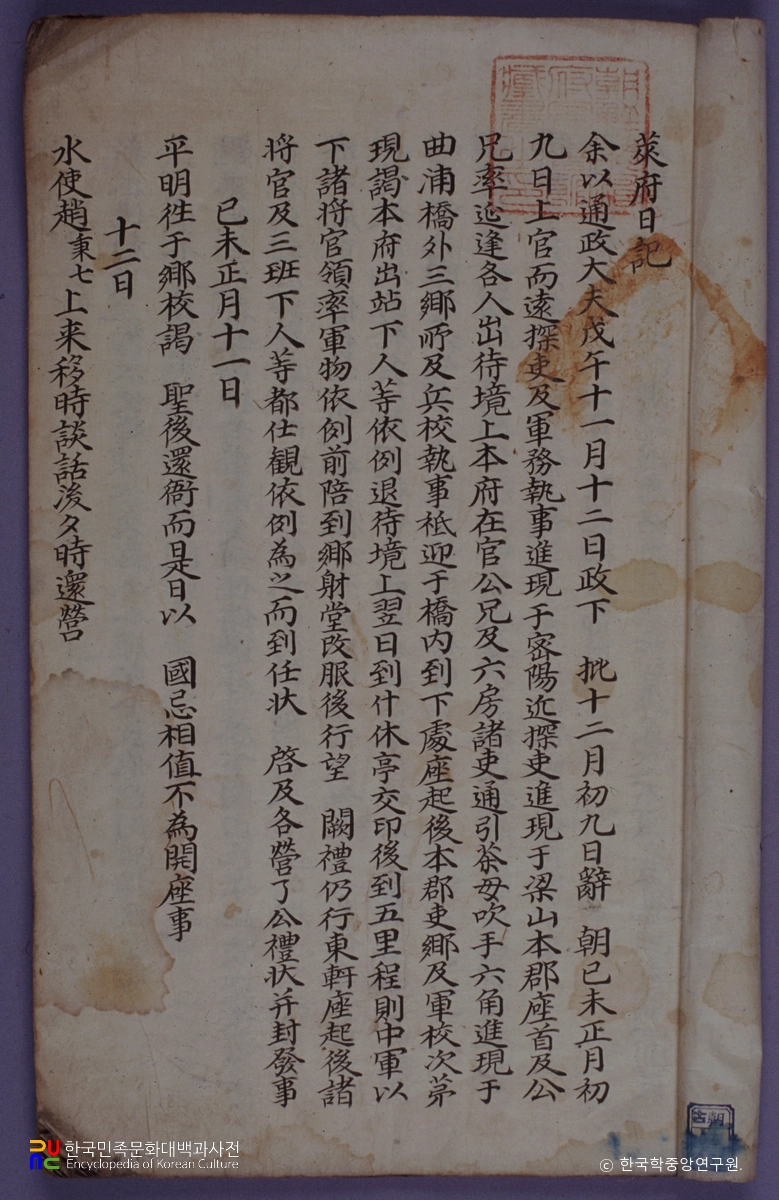 萊府日記
余以通政大夫戊午十一月十二日政下 批十二月初九日辭 朝己未正月初
九日上官而遠探吏及軍務執事進現于密陽近探吏進現于梁山本郡座首及公
兄率延逢各人出待境上本府在官公兄及六房諸吏通引茶母吹手六角進現于
曲浦橋外三鄉所及兵校執事祗迎于橋內到下處座起後本郡吏鄉及軍校次苐
現謁本府出站下人等依例退待境上翌日到什休亭交印後到五里程則中軍以
下諸將官領率軍物依例前陪到鄉射堂改服後行望 闕禮仍行東軒座起後諸
将官及三班下人等都仕観依例為之而到任状 啓及各營了公禮状并封發事
己未正月十一日
平明徃于鄉校謁 聖後還衙而是日以 國忌相值不為開座事
十二日
水使趙東七上来移時談話後夕時還營
한국민족문화대백과사전
Encyclopedia of Korean Culture
© 한국학중앙연구원.